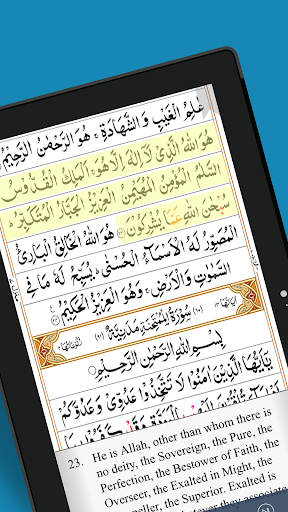 عٰلِمُ الْغَيْبِ وَ الشَّهَادَةِ ۚ هُوَ الرَّحْمٰنُ الرَّحِيْمُ
هُوَ اللّٰهُ الَّذِيْ لَاۤ اِلٰهَ اِلَّا هُوَ ۚ اَلْمَلِكُ الْقُدُّوْسُ
السَّلٰمُ الْمُؤْمِنُ الْمُهَيْمِنُ الْعَزِيْزُ الْجَبَّارُ الْمُتَكَبِّرُ ؕ
سُبْحٰنَ اللّٰهِ عَمَّا يُشْرِكُوْنَ ۲۳ هُوَ اللّٰهُ الْخَالِقُ الْبَارِئُ
الْمُصَوِّرُ لَهُ الْاَسْمَآءُ الْحُسْنٰى ؕ يُسَبِّحُ لَهٗ مَا فِي
السَّمٰوٰتِ وَ الْاَرْضِ ۚ وَ هُوَ الْعَزِيْزُ الْحَكِيْمُ ۲۴
(۶۰) سُوْرَةُ الْمُمْتَحِنَةِ مَدَنِيَّةٌ (۹۱)
بِسْمِ اللّٰهِ الرَّحْمٰنِ الرَّحِيْمِ
يٰۤاَيُّهَا الَّذِيْنَ اٰمَنُوْا لَا تَتَّخِذُوْا عَدُوِّيْ وَ عَدُوَّكُمْ
23. He is Allah, other than whom there is
no deity, the Sovereign, the Pure, the
Perfection, the Bestower of Faith, the
Overseer, the Exalted in Might, the
the Superior. Exalted is
they associate